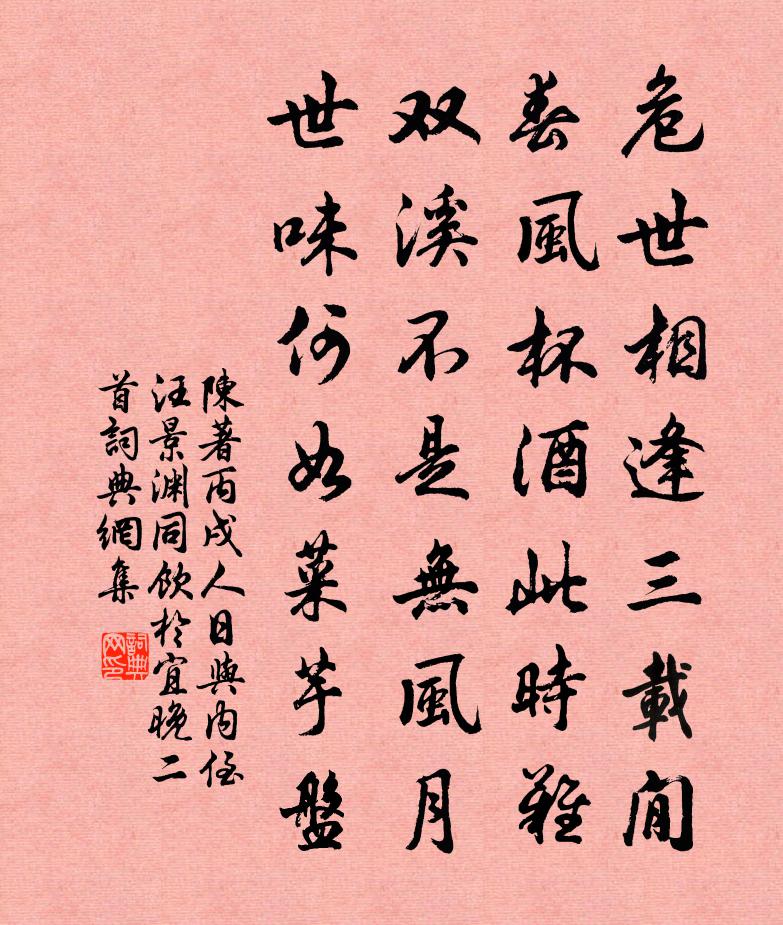 危世相逢三載間
春風杯酒此時難
双溪不是無風月
世味何如菜芋盤
陳著丙戌人日與内侄
汪景渊同飲於宜晚二
首詞典網集
詞典网印